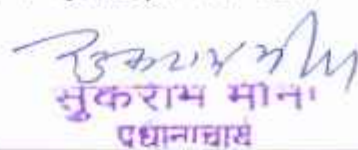 सुकराम मीना
प्रधानाचार्य